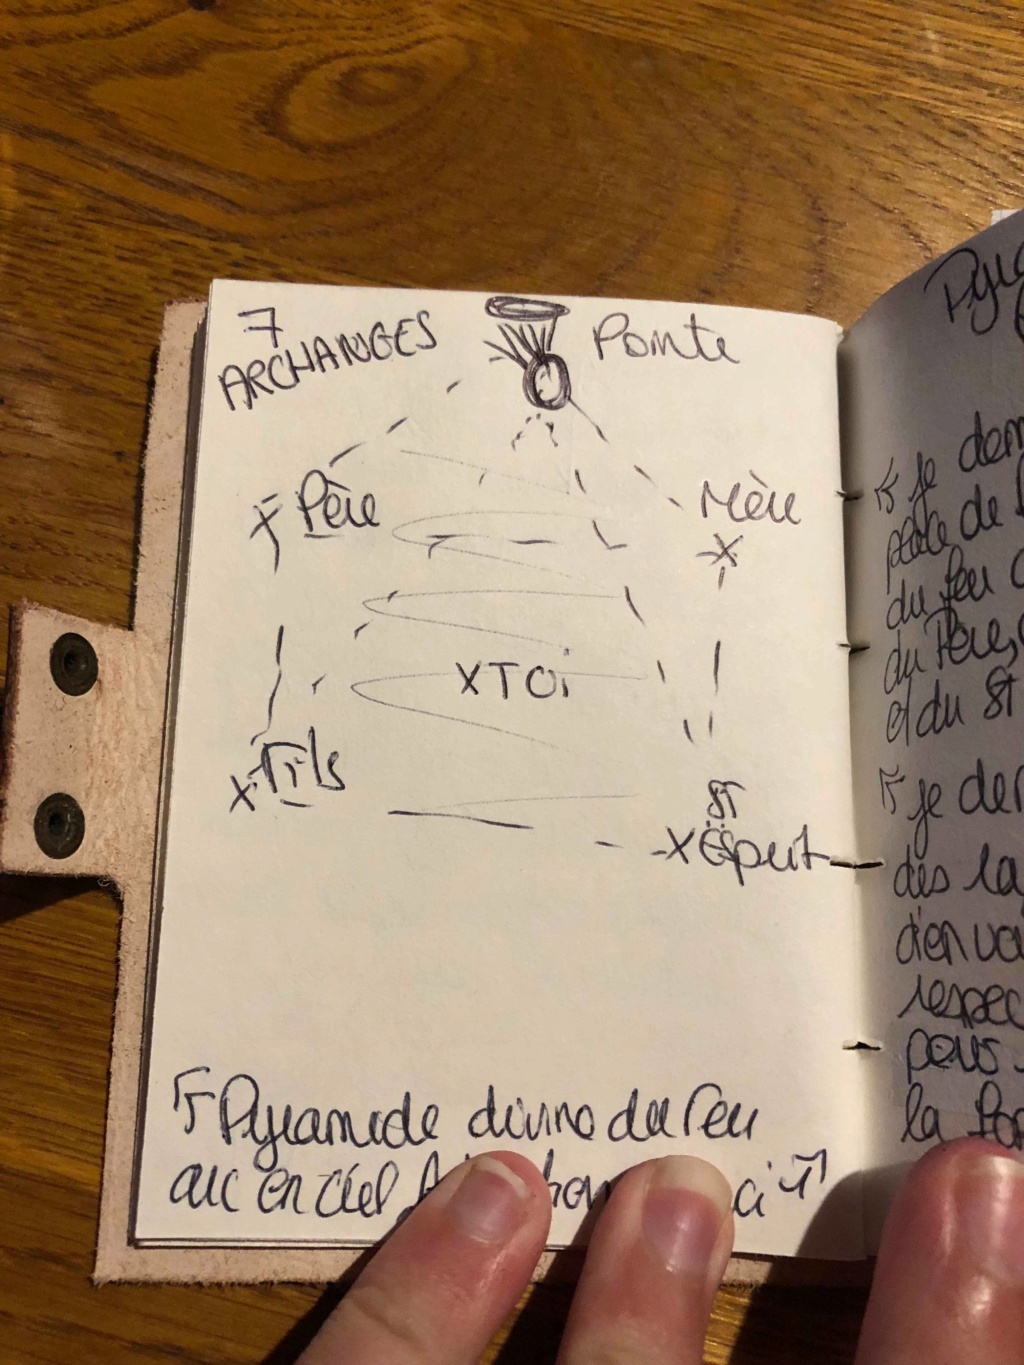 7
ARCHANGES
Pointe
Père
Mère
X
X
X TOi
Fils
X
ST
X Esprit
Pyramide divine du feu
arc en ciel
je dem
du feu
du Père,
et du ST
je der
dès la
d'envoi
respec
la